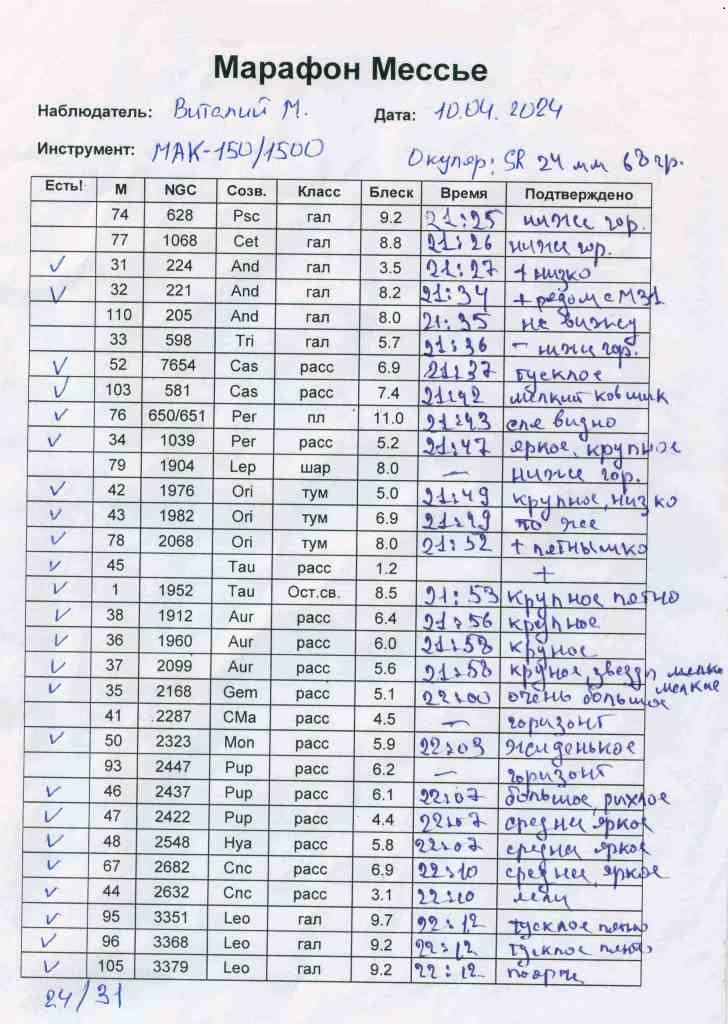 Марафон Мессье
Наблюдатель: Виталий М. Дата: 10.04.2024
Инструмент: МАК-150/1500 Окуляр: SR 24 мм 68 гр.
Есть! М NGC Созв. Класс Блеск Время Подтверждено
74 628 Psc гал 9.2 21:25 ниже гор.
77 1068 Cet гал 8.8 21:26 ниже гор.
✓ 31 224 And гал 3.5 21:27 + низко
✓ 32 221 And гал 8.2 21:34 + рядом с М31
110 205 And гал 8.0 21:35 не вижу
33 598 Tri гал 5.7 21:36 - ниже гор.
✓ 52 7654 Cas расс 6.9 21:37 тусклое
✓ 103 581 Cas расс 7.4 21:42 мелкий ковшик
✓ 76 650/651 Per пл 11.0 21:43 еле видно
✓ 34 1039 Per расс 5.2 21:47 яркое, крупное
79 1904 Lep шар 8.0 — ниже гор.
✓ 42 1976 Ori тум 5.0 21:49 крупное, низко
✓ 43 1982 Ori тум 6.9 21:49 то же
✓ 78 2068 Ori тум 8.0 21:52 + пятнышко
✓ 45 Tau расс 1.2 +
✓ 1 1952 Tau Ост.св. 8.5 21:53 крупное пятно
✓ 38 1912 Aur расс 6.4 21:56 крупное
✓ 36 1960 Aur расс 6.0 21:58 круное
✓ 37 2099 Aur расс 5.6 21:58 круное, звезды мелкие
✓ 35 2168 Gem расс 5.1 22:00 очень большое мелкие
41 2287 CMa расс 4.5 — горизонт
✓ 50 2323 Mon расс 5.9 22:03 жиденькое
93 2447 Pup расс 6.2 — горизонт
✓ 46 2437 Pup расс 6.1 22:07 большое, рыхлое
✓ 47 2422 Pup расс 4.4 22:07 средни яркое
✓ 48 2548 Hya расс 5.8 22:07 средни яркое
✓ 67 2682 Cnc расс 6.9 22:10 средни, яркое
✓ 44 2632 Cnc расс 3.1 22:10 ясли
✓ 95 3351 Leo гал 9.7 22:12 тусклое пятно
✓ 96 3368 Leo гал 9.2 22:12 тусклое пятно
✓ 105 3379 Leo гал 9.2 22:12 поярче
24/31